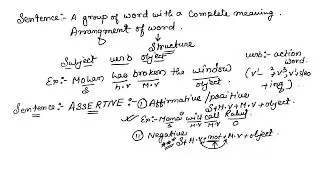 Sentence:- A group of word with a complete meaning.
Arrangment of word.
Structure
Subject verb object.
verb:- action word.
Ex:- Mohan has broken the window
S H.V M.V object.
+ing)
Sentence:- ASSERTIVE:- (i) Affirmative/positive
S+H.V+M.V+object.
Ex:- Manoj will call Rahul.
S H.V M.V O
(ii) Negative
S+H.V+not+M.V+object.